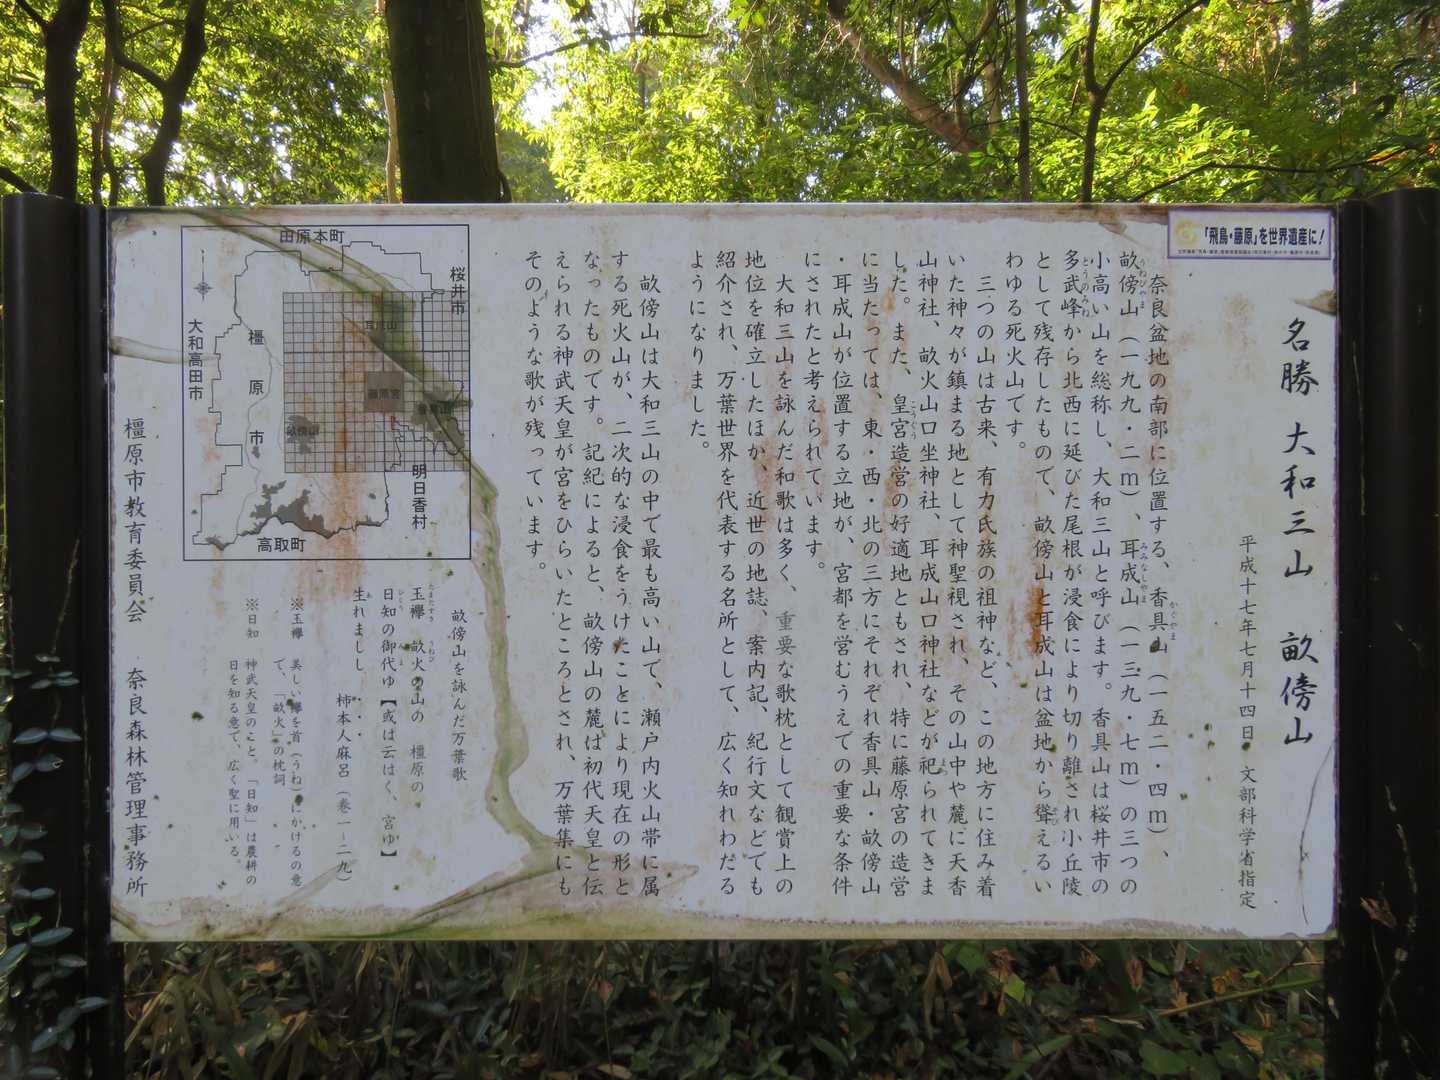 「飛鳥・藤原」を世界遺産に!
名勝 大和三山 畝傍山
平成十七年七月十四日 文部科学省指定
奈良盆地の南部に位置する、香具山（一五二・四m）、
畝傍山（一九九・二m）、耳成山（一三九・七m）の三つの
小高い山を総称し、大和三山と呼びます。香具山は桜井市の
多武峰から北西に延びた尾根が浸食により切り離され小丘陵
として残存したもので、畝傍山と耳成山は盆地から聳えるい
わゆる死火山です。
三つの山は古来、有力氏族の祖神など、この地方に住み着
いた神々が鎮まる地として神聖視され、その山中や麓に天香
山神社、畝火山口坐神社、耳成山口神社などが祀られてきま
した。また、皇宮造営の好適地ともされ、特に藤原宮の造営
に当たっては、東・西・北の三方にそれぞれ香具山・畝傍山
・耳成山が位置する立地が、宮都を営むうえでの重要な条件
にされたと考えられています。
大和三山を詠んだ和歌は多く、重要な歌枕として観賞上の
地位を確立したほか、近世の地誌、案内記、紀行文などでも
紹介され、万葉世界を代表する名所として、広く知れわたる
ようになりました。
畝傍山は大和三山の中で最も高い山で、瀬戸内火山帯に属
する死火山が、二次的な浸食をうけたことにより現在の形と
なったものです。記紀によると、畝傍山の麓は初代天皇と伝
えられる神武天皇が宮をひらいたところとされ、万葉集にも
そのような歌が残っています。
田原本町
桜井市
大和高田市
橿原市
耳成山
藤原宮
香具山
畝傍山
明日香村
高取町
畝傍山を詠んだ万葉歌
玉襷 畝火の山の 橿原の
日知の御代ゆ【或は云はく、宮ゆ】
生れましし・・・
柿本人麻呂（巻一－二九）
※玉襷 美しい襷を首（うね）にかけるの意
で、「畝火」の枕詞
※日知 神武天皇のこと。「日知」は農耕の
日を知る意で、広く聖に用いる。
橿原市教育委員会 奈良森林管理事務所